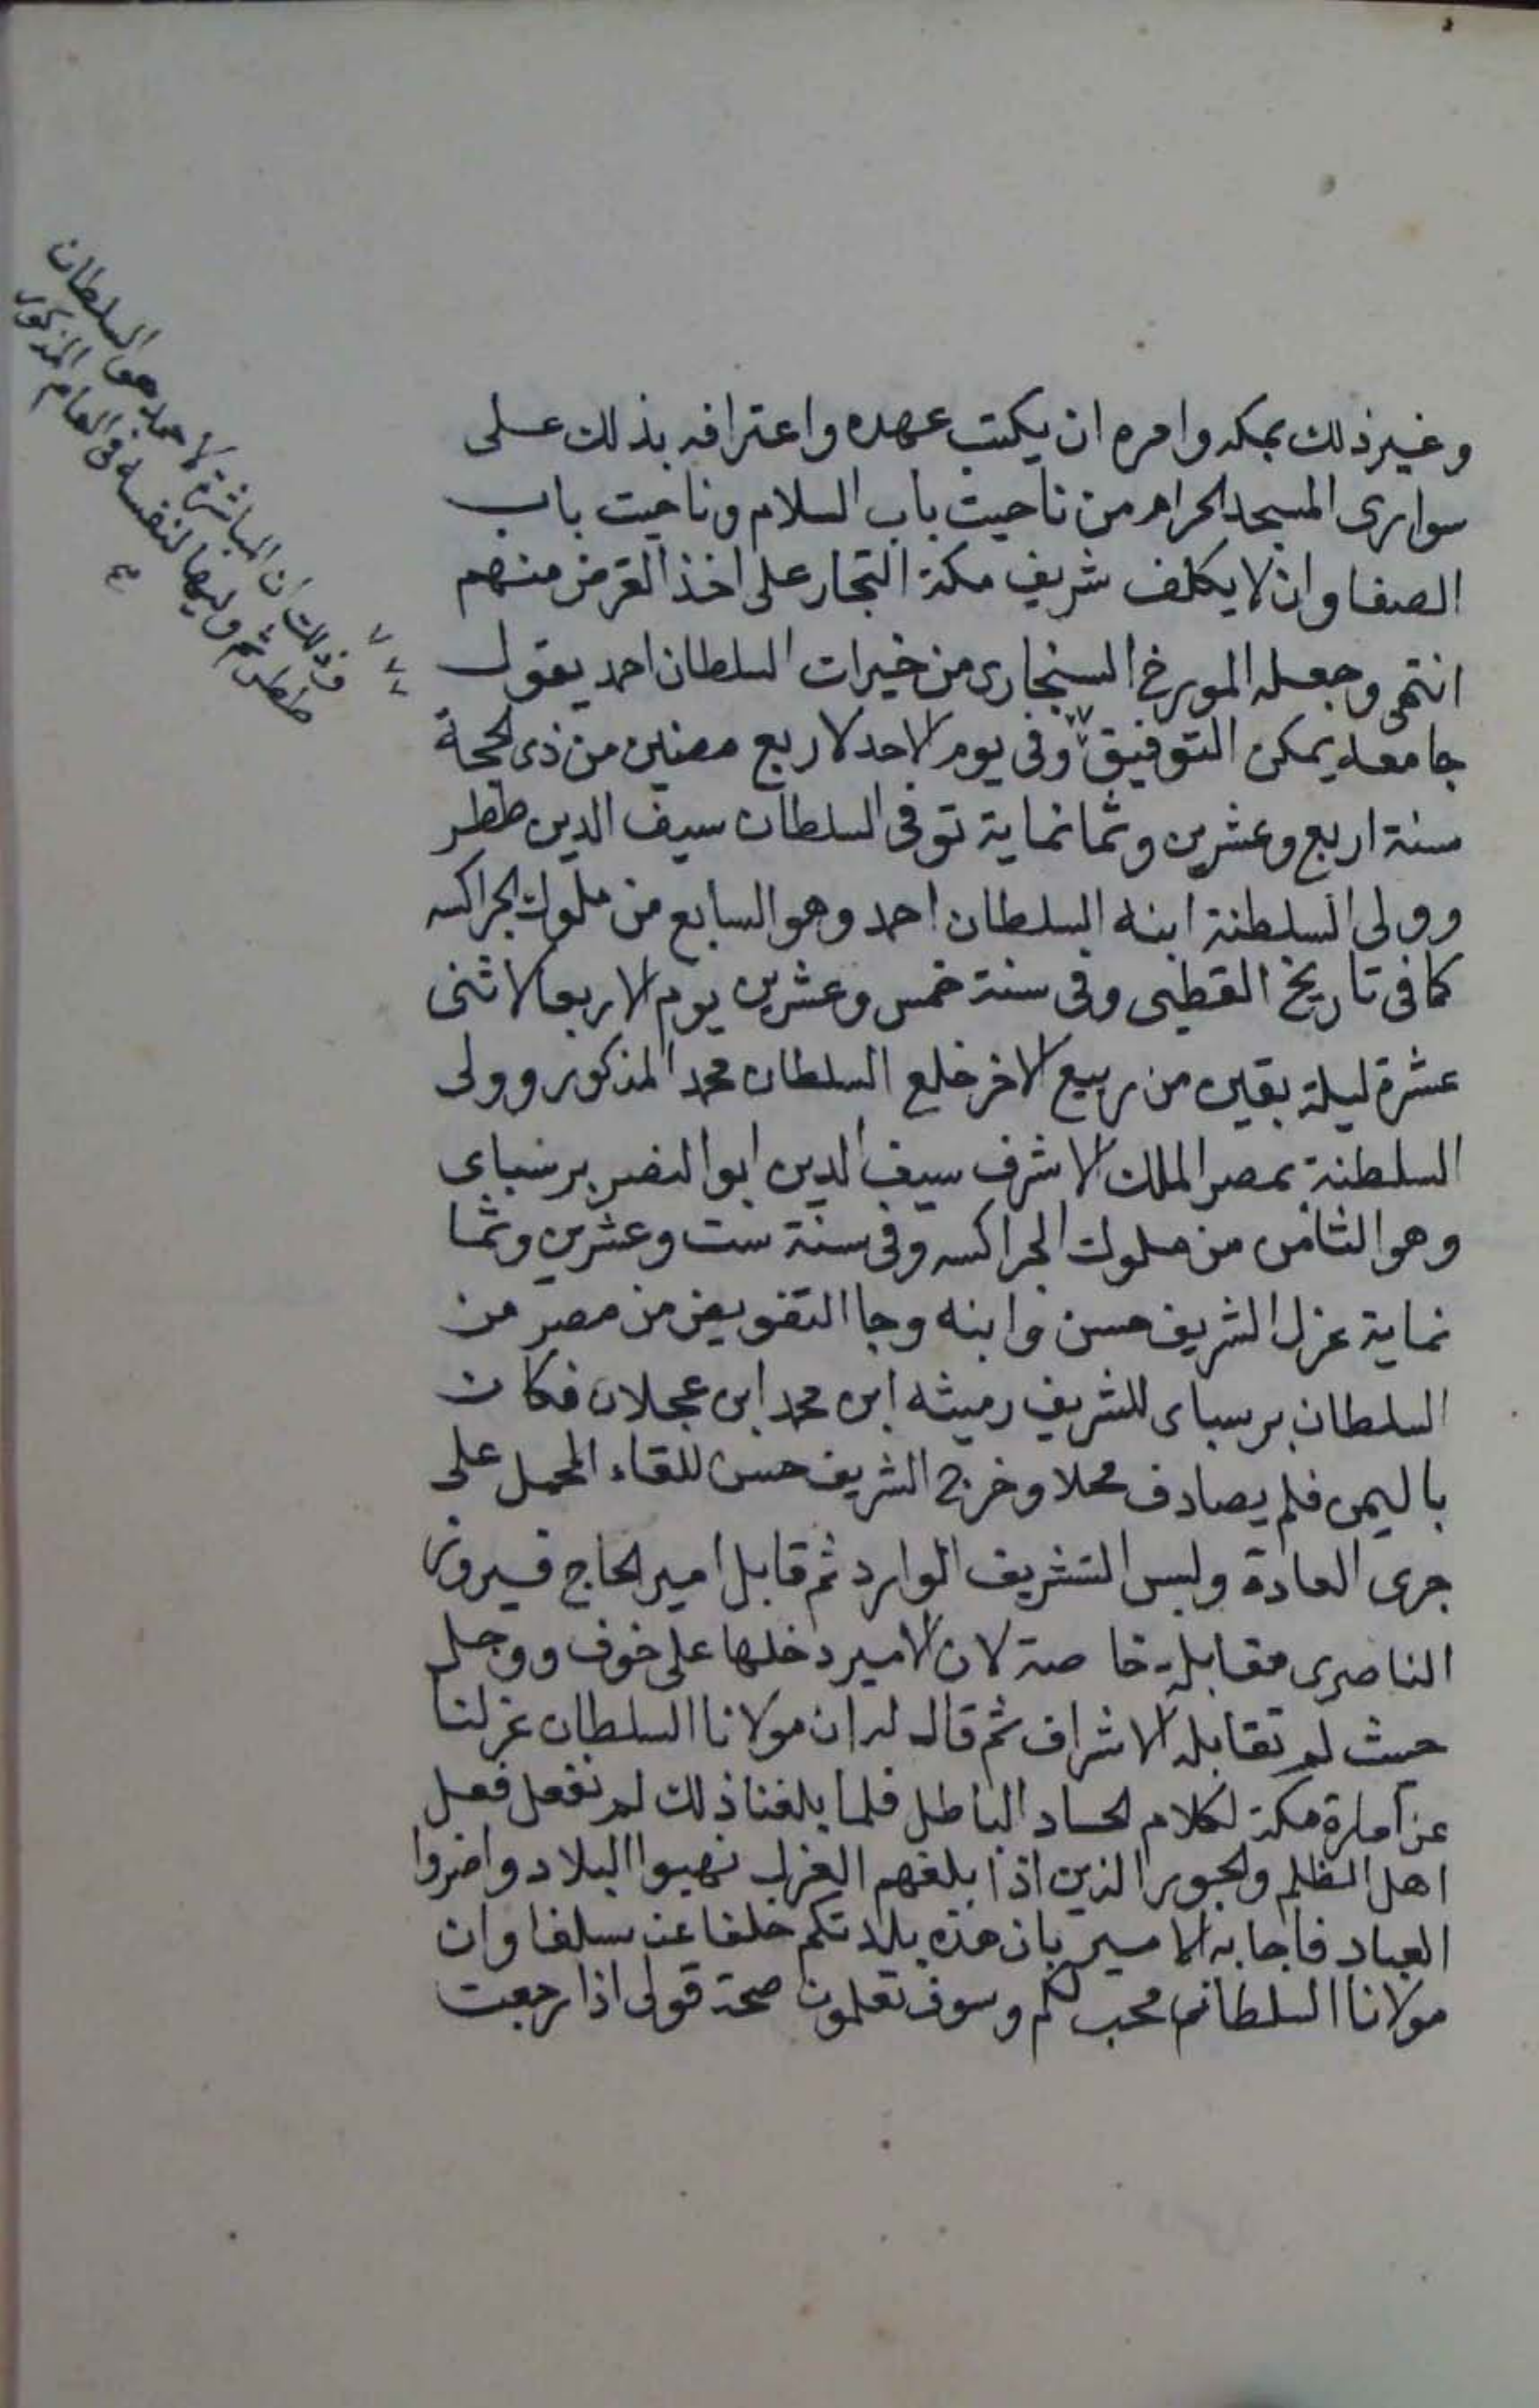 وغير ذلك بمكه وامره ان يكتب عهده واعترافه بذلك على
سوارى المسجد الحرام من ناحيت باب السلام وناحيت باب
الصفا وان لا يكلف شريف مكة التجار على اخذ القرض منهم
انتهى وجعله المورخ السنجارى من خيرات السلطان احمد يقول
جامعه يمكن التوفيق وفى يوم الاحد لاربع مضين من ذى الحجة
سنة اربع وعشرين وثمانماية توفى السلطان سيف الدين ططر
وولى السلطنة ابنه السلطان احمد وهو السابع من ملوك الجراكسه
كما فى تاريخ القطبى وفى سنة خمس وعشرين يوم الاربعا لاثنى
عشرة ليلة بقين من ربيع الاخر خلع السلطان محمد المذكور وولى
السلطنة بمصر الملك الاشرف سيف الدين ابو النصر برسباى
وهو الثامن من ملوك الجراكسه وفى سنة ست وعشرين وثما
نماية عزل الشريف حسن وابنه وجا التفويض من مصر من
السلطان برسباى للشريف رميثه ابن محمد ابن عجلان فكان
باليمن فلم يصادف محلا وخرج الشريف حسن للقاء المحمل على
جرى العادة ولبس التشريف الوارد ثم قابل امير الحاج فيروز
الناصرى مقابلة خاصة لان الامير دخلها على خوف ووجل
حيث لم تقابله الاشراف ثم قال له ان مولانا السلطان عزلنا
عن امارة مكة لكلام الحساد الباطل فلما بلغنا ذلك لم نفعل فعل
اهل الظلم والجور الذين اذا بلغهم العزل نهبوا البلاد واضروا
العباد فاجابه الامير بان هذه بلادكم خلفا عن سلفا وان
مولانا السلطان محب لكم وسوف تعلمون صحة قولى اذا رجعت
وذلك ان المباشرة لاحمد هو السلطان
ططر ثم وليها لنفسه فى العام المذكور